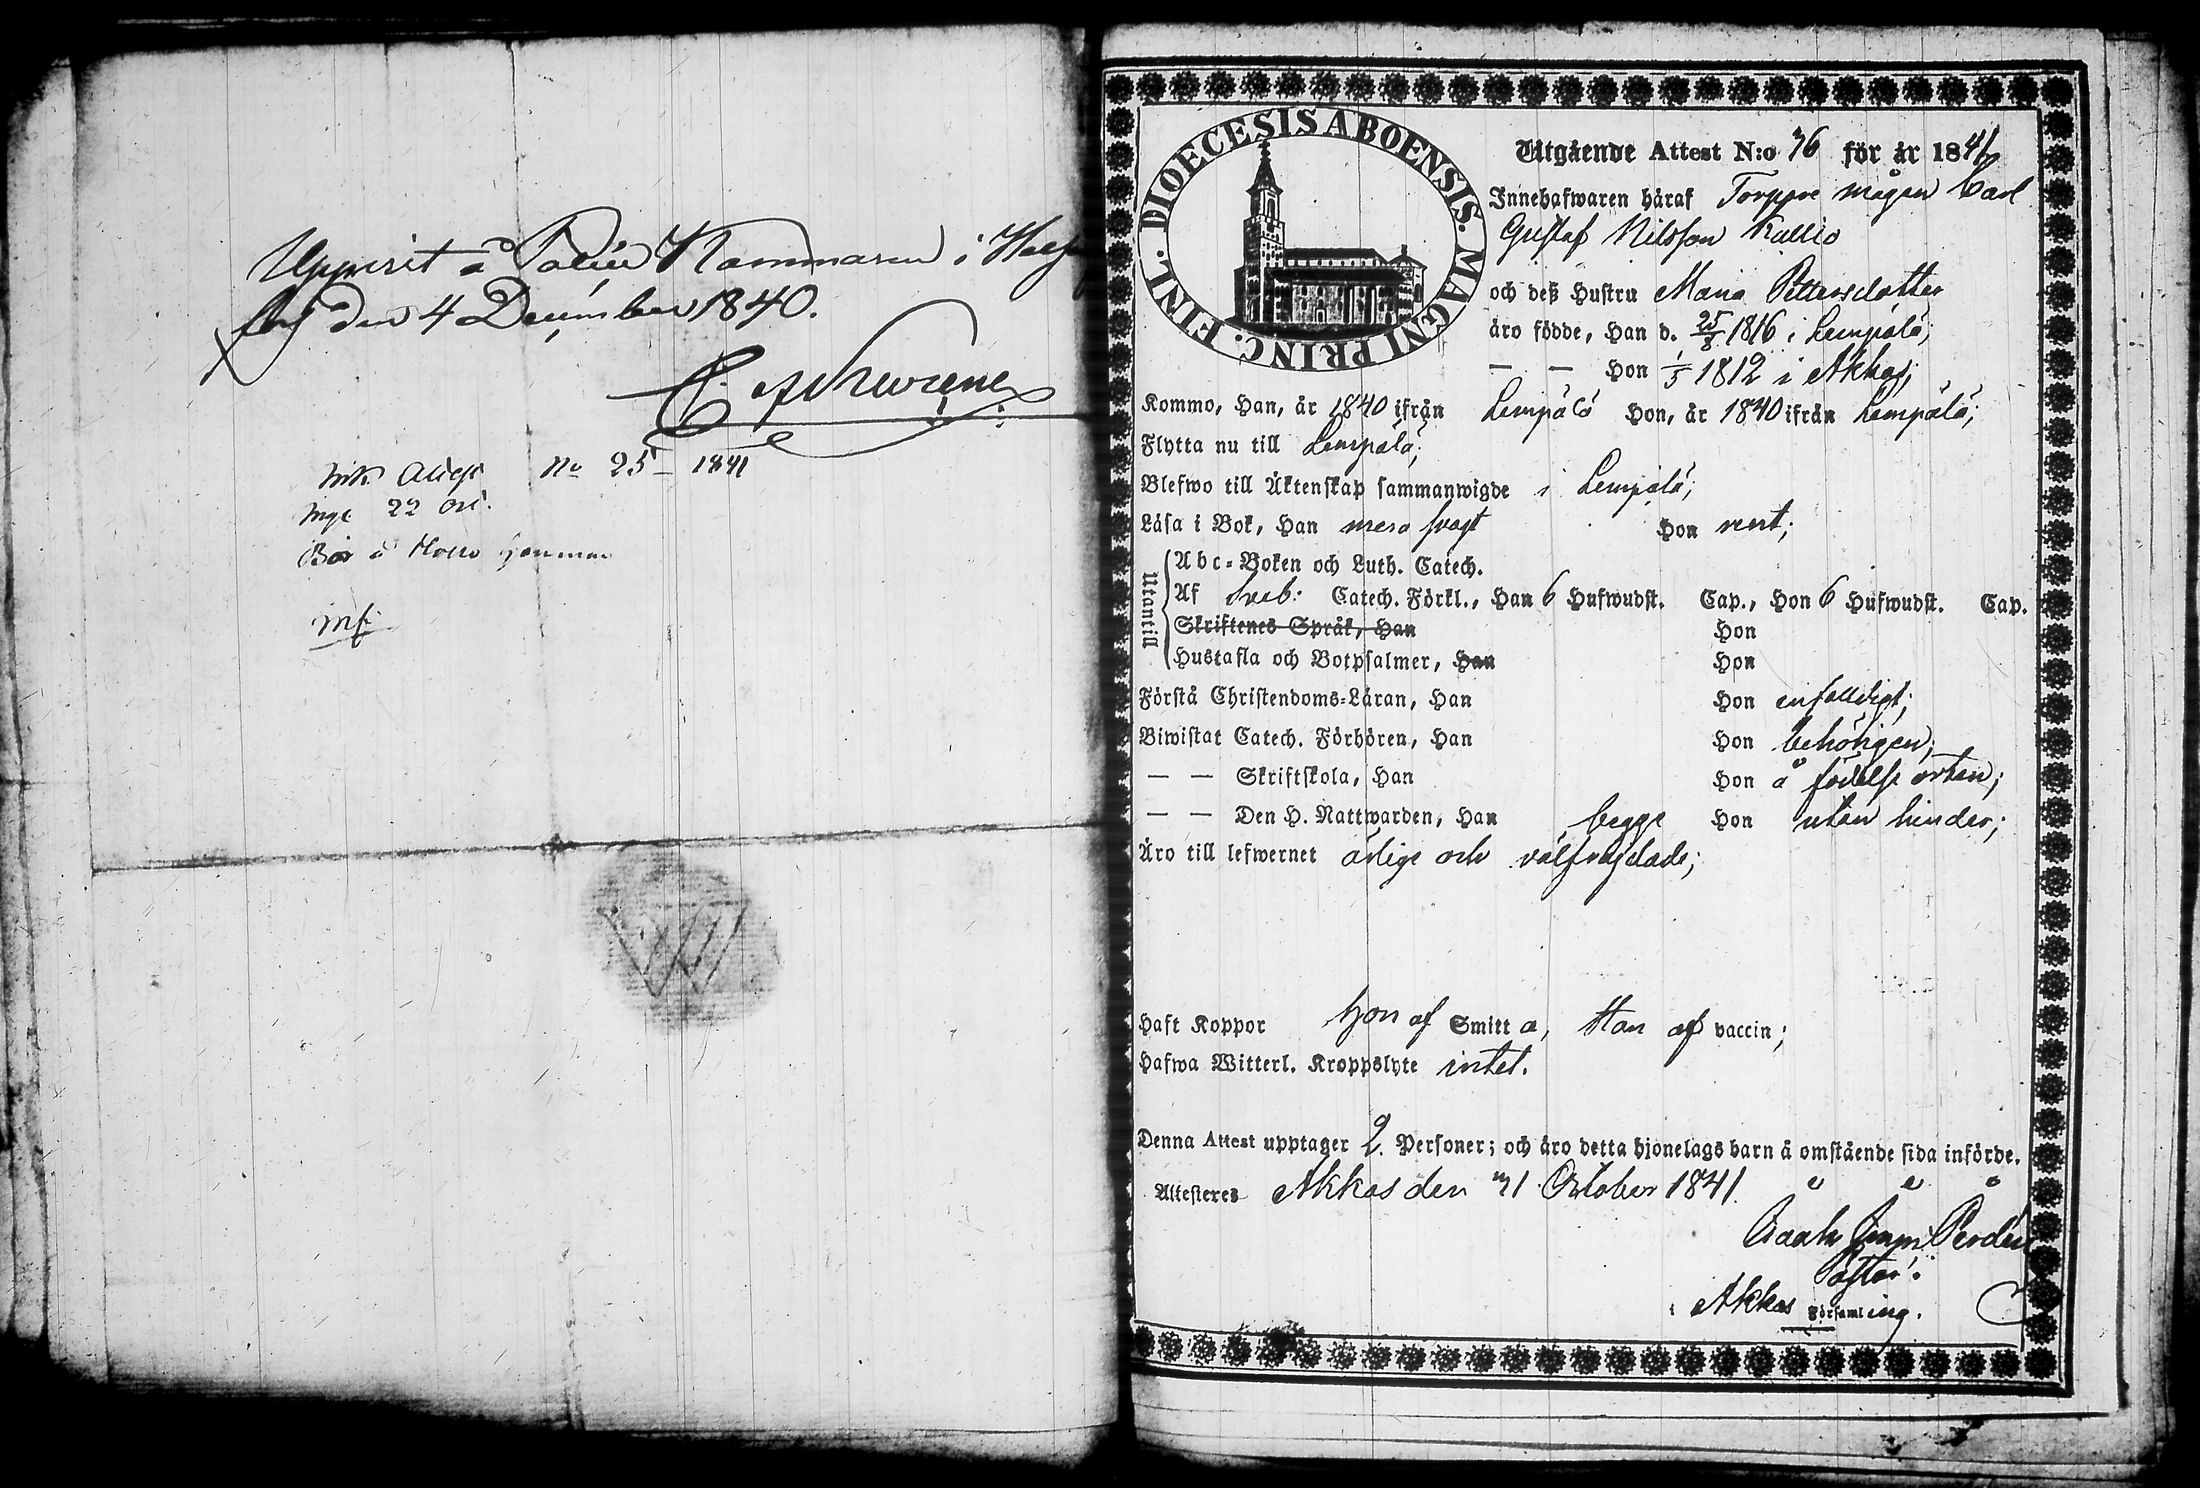 Uppvist å Polis Kammaren i Helsing
fors den 4 December 1840.
Ink Attest No 25 - 1841
DIOECESIS ABOENSIS. MAGNI PRINC. FINL.
Utgående Attest N:o 76 för år 1841
Innehafwaren häraf Torppare mågen Carl
Gustaf Nilsson Kallio
och deß Hustru Maria Pettersdotter
äro födde, Han d. 25/8 1816 i Lempälä;
— — Hon 1/5 1812 i Akkas;
Kommo, Han, år 1840 ifrån Lempälä Hon, år 1840 ifrån Lempälä;
Flytta nu till Lempälä;
Blefwo till Äktenskap sammanwigde i Lempälä;
Läsa i Bok, Han mera svagt Hon rent;
Utantill
Abc-Boken och Luth. Catech.
Af Sveb: Catech. Förkl., Han 6 Hufwudst. Cap., Hon 6 Hufwudst. Cap.
Skriftenes Språk, Han Hon
Hustafla och Botpsalmer, Han Hon
Förstå Christendoms-Läran, Han Hon enfaldigt;
Biwistat Catech. Förhören, Han Hon behörigen;
— — Skriftskola, Han Hon å födelse orten;
— — Den H. Nattwarden, Han begge Hon utan hinder;
Äro till lefwernet ärlige och välfrägdade;
Haft Koppor Hon af Smitta, Han af vaccin;
Hafwa Witterl. Kroppslyte intet.
Denna Attest upptager 2. Personer; och äro detta hjonelags barn å omstående sida införde.
Attesteres Akkas den 31 October 1841.
Pastor.
i Akkas Församling.